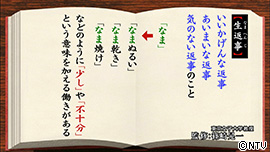 【生返事】
なまへんじ
いいかげんな返事
あいまいな返事
気のない返事のこと
「なま」
「なまぬるい」
「なま乾き」
「なま焼け」
などのように「少し」や「不十分」
という意味を加える働きがある
©NTV